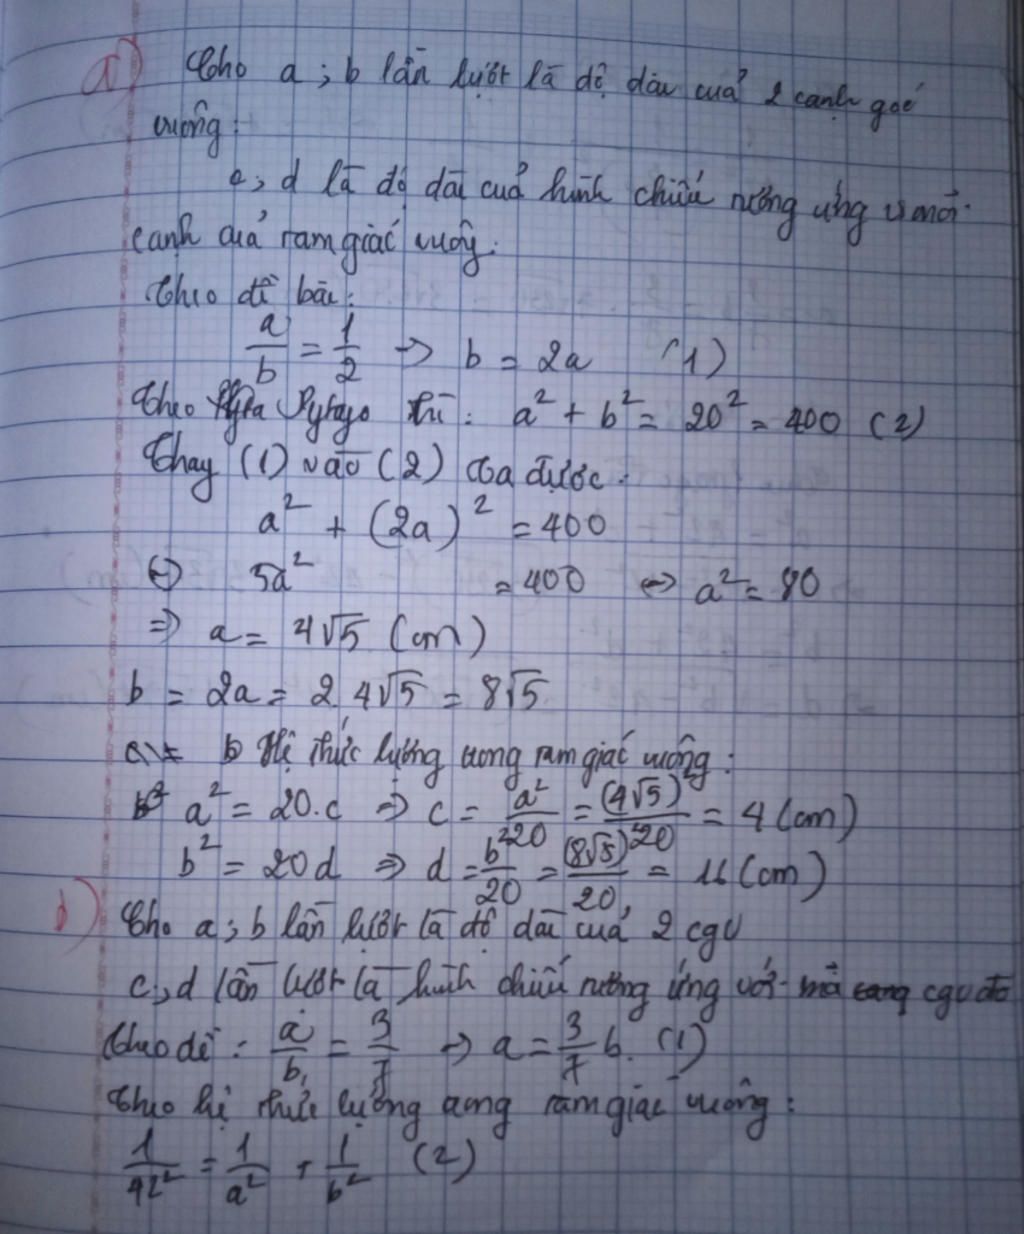 a) Cho a ; b lần lượt là độ dài của 2 cạnh góc
vuông :
c, d là độ dài của hình chiếu tương ứng với mỗi
cạnh của tam giác vuông.
Theo đề bài :
a/b = 1/2 → b = 2a (1)
Theo Pytago thì : a² + b² = 20² = 400 (2)
Thay (1) vào (2) ta được :
a² + (2a)² = 400
⇔ 5a² = 400 ⇔ a² = 80
⇒ a = 4√5 (cm)
b = 2a = 2.4√5 = 8√5
Hệ thức lượng trong tam giác vuông :
a² = 20.c ⇒ c = a²/20 = (4√5)²/20 = 4 (cm)
b² = 20d ⇒ d = b²/20 = (8√5)²/20 = 16 (cm)
b) Cho a ; b lần lượt là độ dài của 2 cgv
c, d lần lượt là hình chiếu tương ứng với cgv đó
Theo đề : a/b = 3/7 → a = 3/7 b. (1)
Theo hệ thức lượng trong tam giác vuông :
1/42² = 1/a² + 1/b² (2)